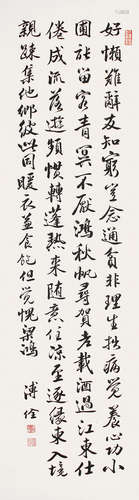 好懶難辭友知窮豈念通貧非理生拙病覺養心功小
圃能留客青冥不厭鴻秋帆尋賀老載酒過江東仕
倦成流落遊頻慣轉蓬熱來隨意住涼至逐緣東入境
親疎集他鄉彼此同暖衣並食飽但覺愧梁鴻
溥佺